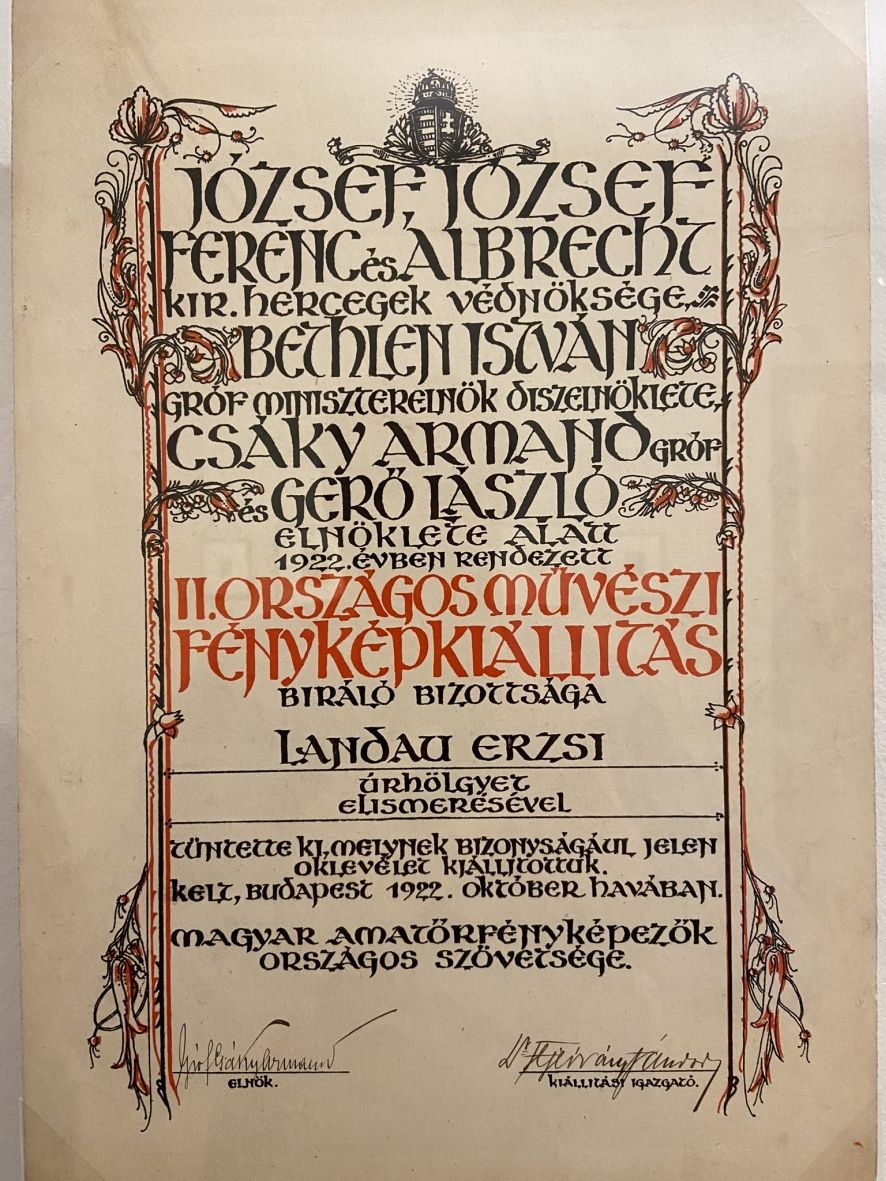 JÓZSEF, JÓZSEF
FERENC és ALBRECHT
KIR. HERCEGEK VÉDNÖKSÉGE,
BETHLEN ISTVÁN
GRÓF MINISZTERELNÖK DISZELNÖKLETE,
CSÁKY ARMAND GRÓF
és GERŐ LÁSZLÓ
ELNÖKLETE ALATT
1922. ÉVBEN RENDEZETT
II. ORSZÁGOS MŰVÉSZI
FÉNYKÉPKIÁLLITÁS
BIRÁLÓ BIZOTTSÁGA
LANDAU ERZSI
ÚRHÖLGYET
ELISMERÉSÉVEL
TÜNTETTE KI, MELYNEK BIZONYSÁGÁUL JELEN
OKLEVELET KIÁLLITOTTUK.
KELT, BUDAPEST 1922. OKTÓBER HAVÁBAN.
MAGYAR AMATŐRFÉNYKÉPEZŐK
ORSZÁGOS SZÖVETSÉGE.
Gróf Csáky Armand
ELNÖK.
Dr
KIÁLLITÁSI IGAZGATÓ.